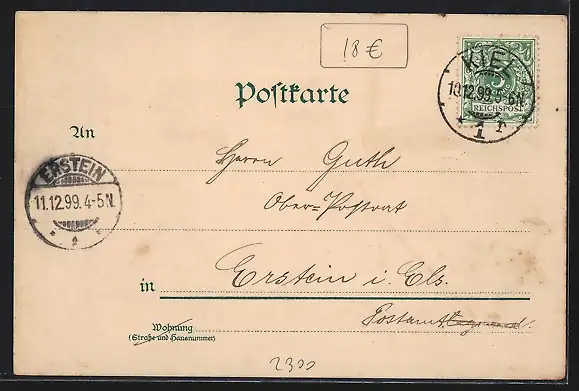 18 €
KIEL
10.12.99.5-6N.
1 r
5
REICHSPOST
Postkarte
An
ERSTEIN
11.12.99.4-5N.
1
Herrn Guth
Ober=Postrat
in Erstein i. Els.
Postamt
Wohnung
(Straße und Hausnummer)
2300